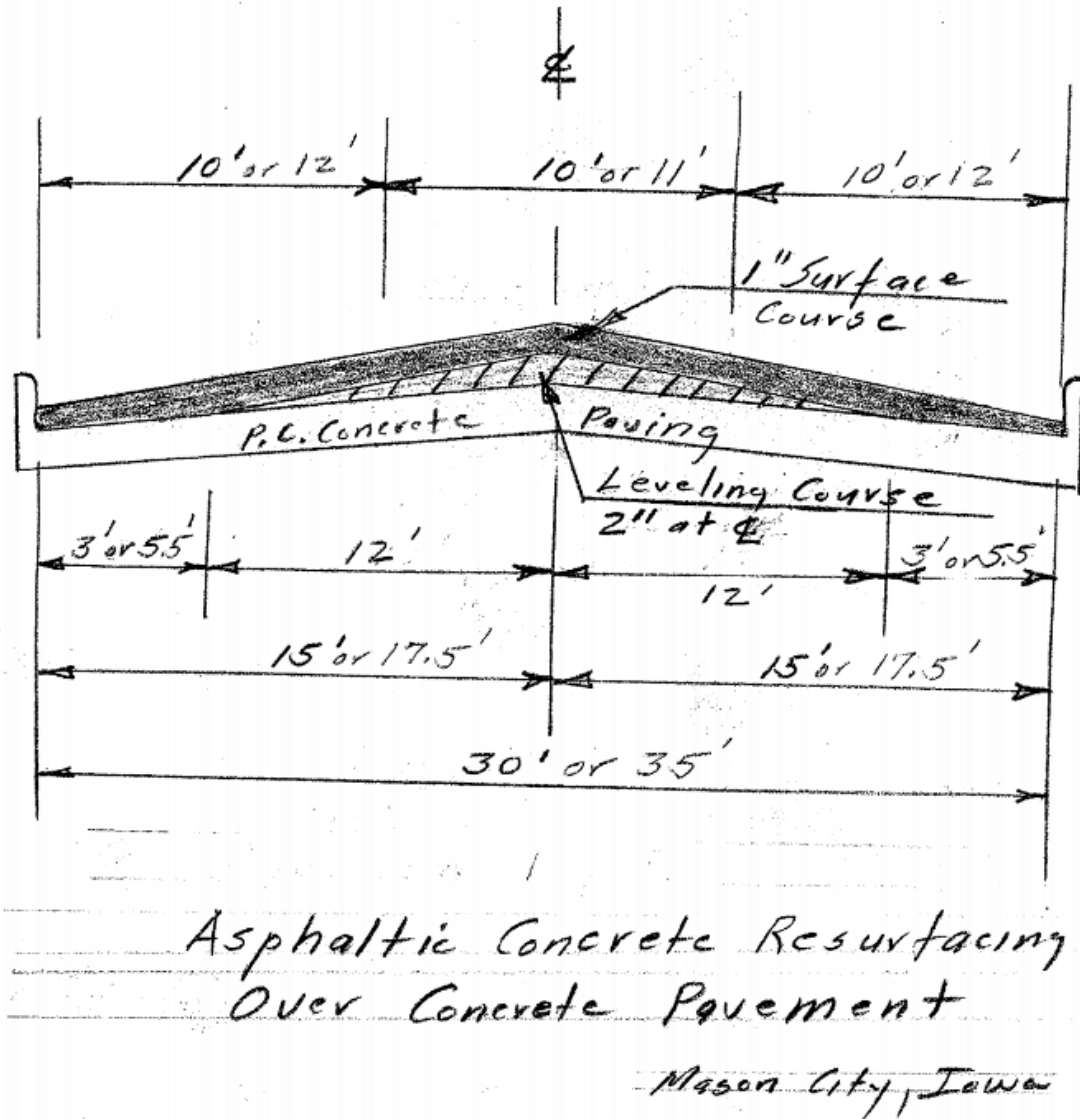 ℄
10' or 12' 10' or 11' 10' or 12'
1" Surface
Course
P.C. Concrete Paving
Leveling Course
2" at ℄
3' or 5.5' 12' 12' 3' or 5.5'
15' or 17.5' 15' or 17.5'
30' or 35'
Asphaltic Concrete Resurfacing
Over Concrete Pavement
Mason City, Iowa